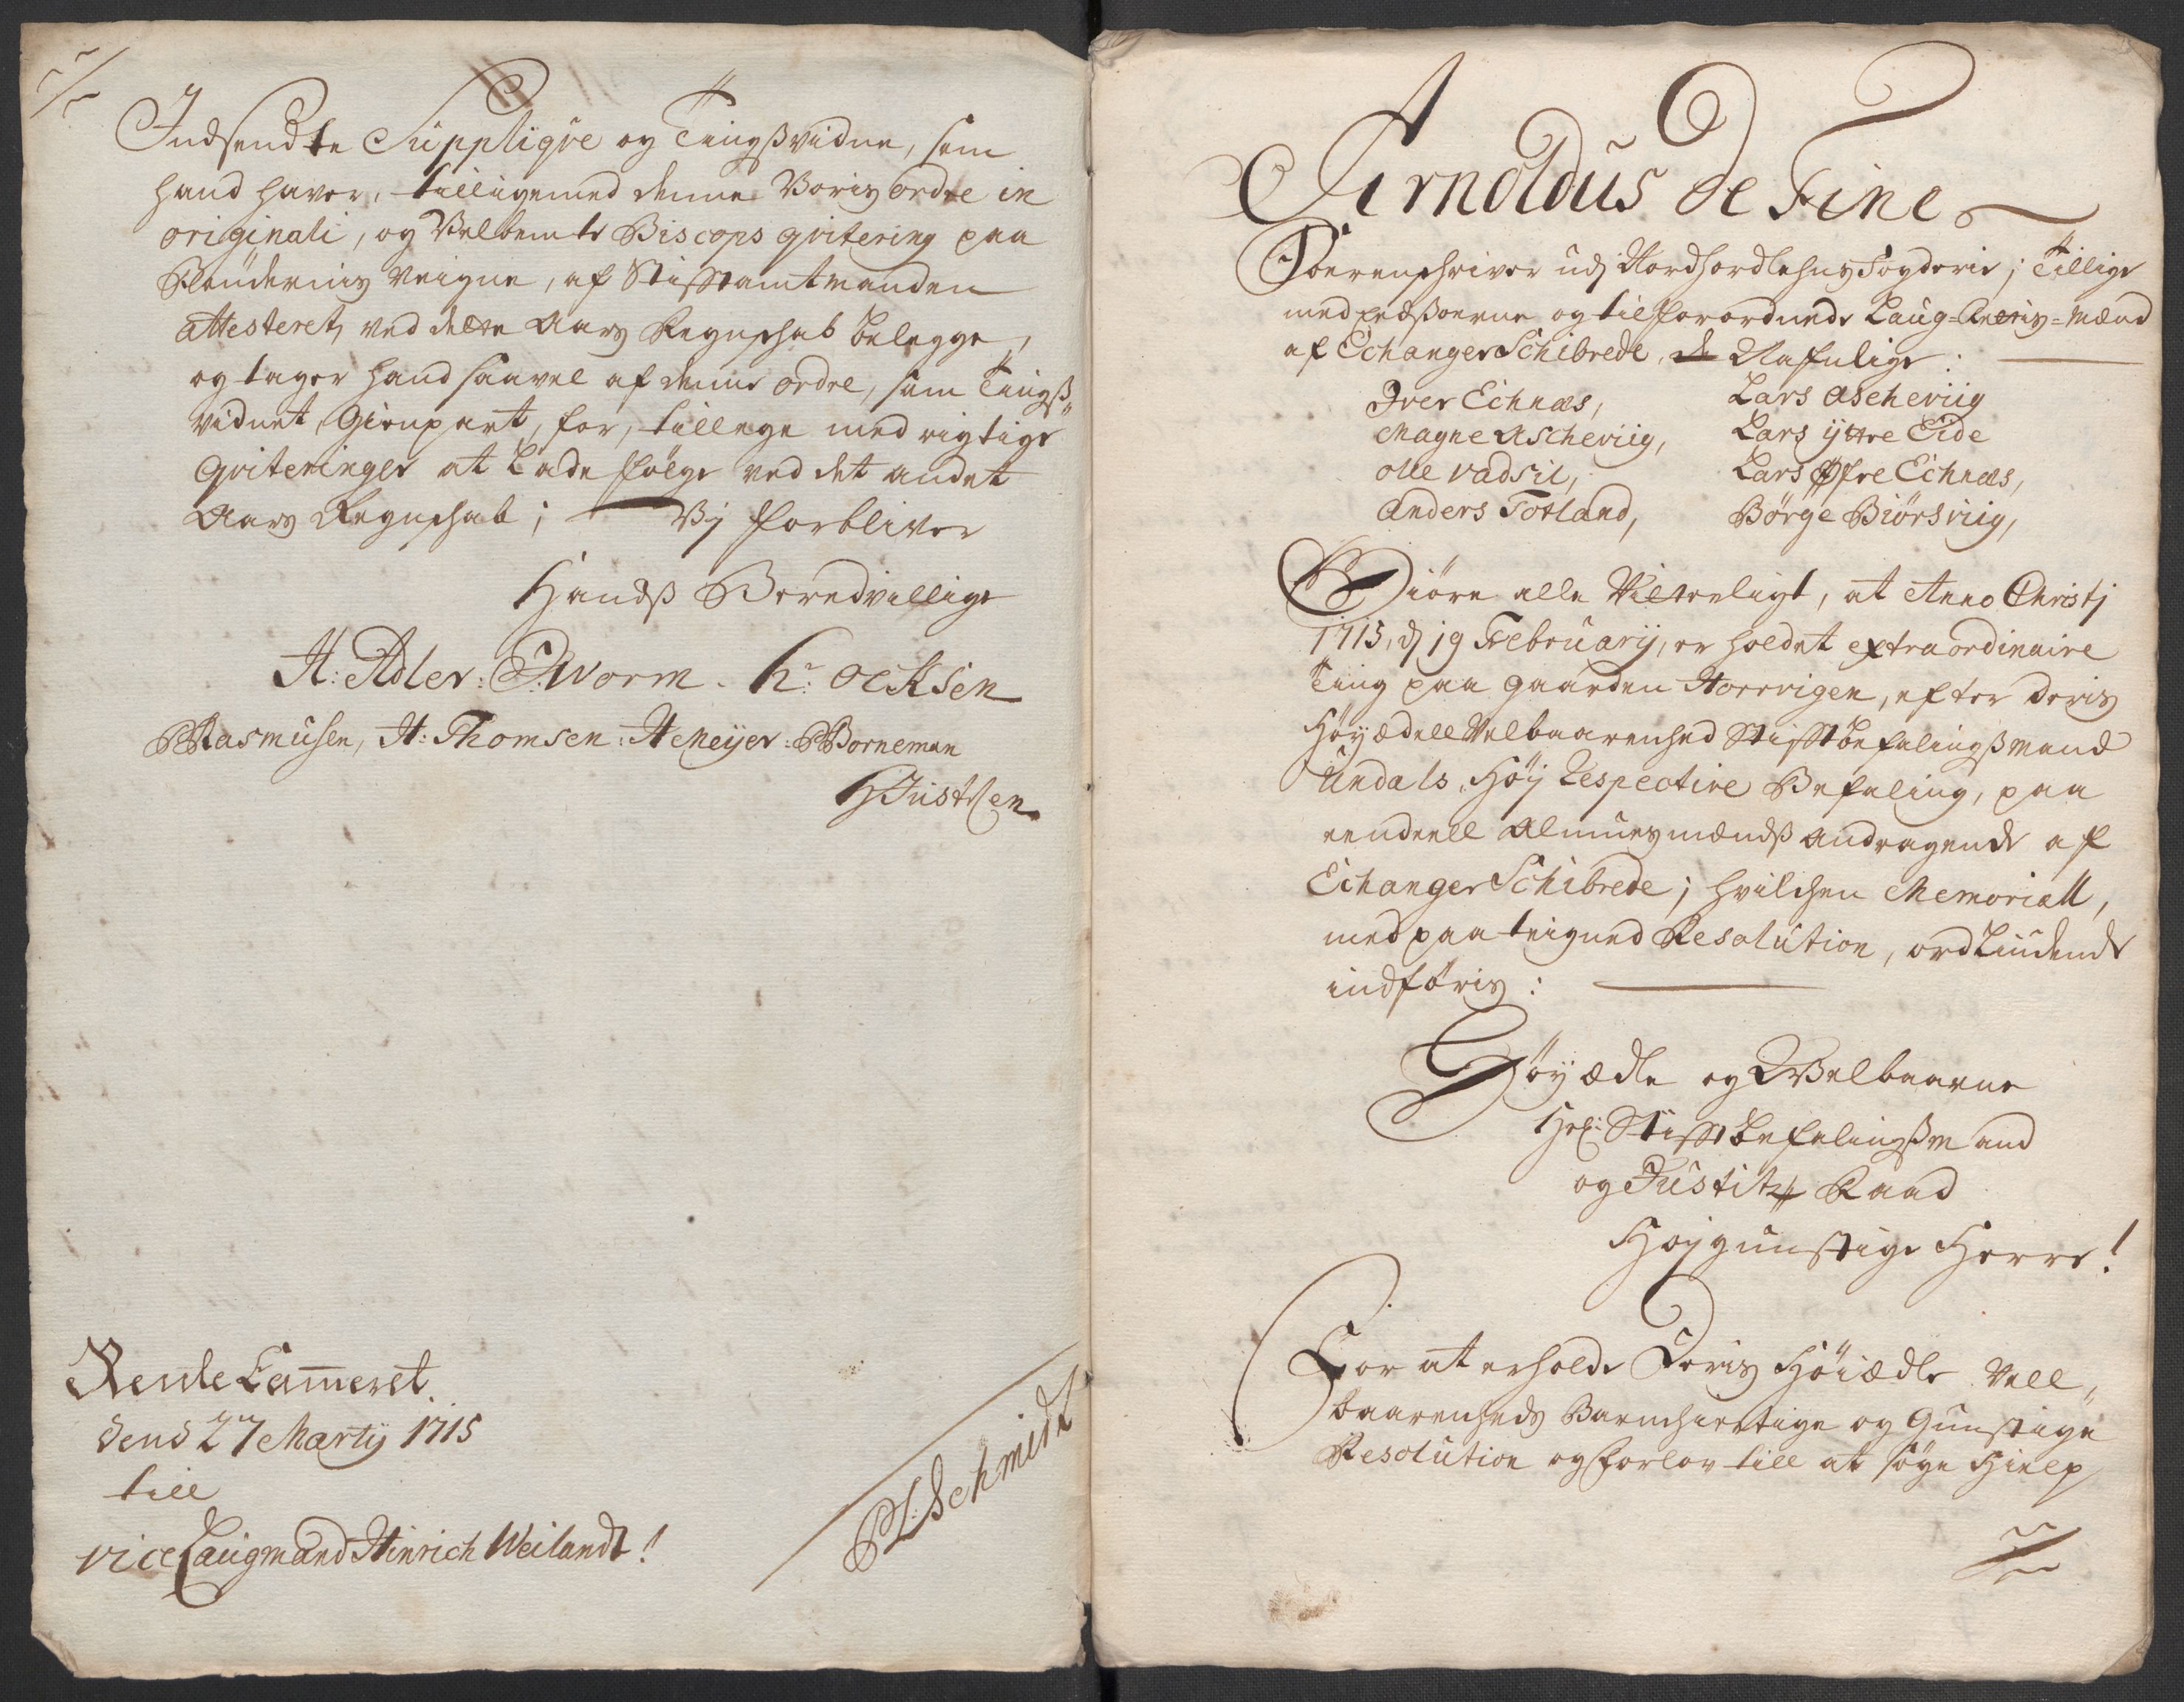 Indsendte Suppliqve og Tingßvidne, som
hand haver, tilligemed denne Voris ordre in
originali, og Velbemte Biscops qvitering paa
Pleudernis Veigne, af Stifftamtmanden
attesteret, ved dette Aars Regnschab belegge,
og tager hand saavel af denne ordre, som Tingß„
vidnet, Gienpart, for, tillige med rigtige
Qviteringer at Lade følge ved det andet
Aars Regnschab; Vj forbliver
Handß Beredvillige
A: Adler: C: Worm. C: Ocksen
Rasmusen, H: Thomsen: H Meijer: P Borneman
H Justesen.
Rente Cam̄eret.
dend 27 Martij 1715
till
vice Laugmand Hinrich Weilandt!
PL: Schmidt
Arnoldus de Fine
Soerenschriver udj Nordhordlehns Fogderie; Tillige
med Eedßoerne og tilforordnede Laug-Rettis-Mænd
af Echanger Schibrede, de Nafnlige:
Iver Echnæs, Lars Ascheviig
Magne Ascheviig, Lars ÿttre Eide
Olle Vadsil, Lars Øfre Echnæs,
Anders Totland, Børge Biørsviig,
Giøre alle Vitterligt, at Anno Christj
1715, d 19 Februarij, er holdet extraordinaire
Ting paa gaarden Horrvigen, efter Deris
Høyædell Velbaarenhed Stifftbefalingßmand
Undals, Høy Respective Befaling, paa
eendeell Almuesmændß andragende af
Echanger Schibrede; hvilchen Memoriall,
med paa teigned Resolution, ordLiudende
indføris:
Høyædle og Velbaarne
Hr: Stifftbefalingßmand
og Justitz Raad
Høygunstige Herre!
For at erholde Deris Høiædle Vell„
baarenheds Barmhiertige og Gunstige
Resolution og forlov till at søge Hielp